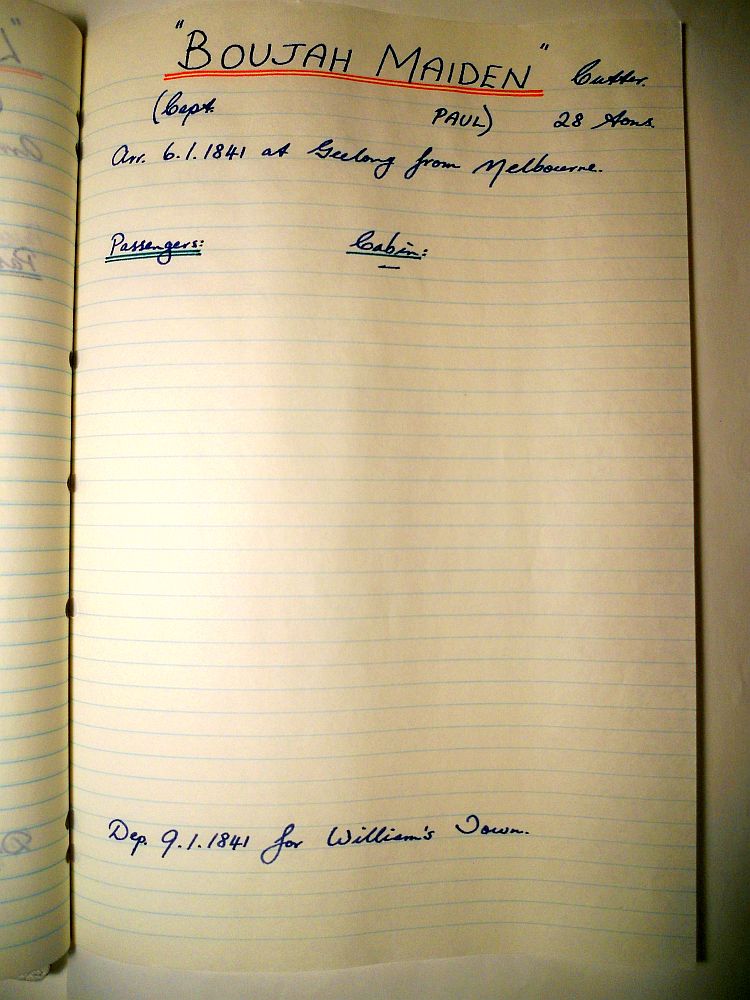 "BOUJAH MAIDEN" Cutter.
(Capt. PAUL) 28 tons.
Arr. 6.1.1841 at Geelong from Melbourne.
Passengers: Cabin:
Dep. 9.1.1841 for William's Town.